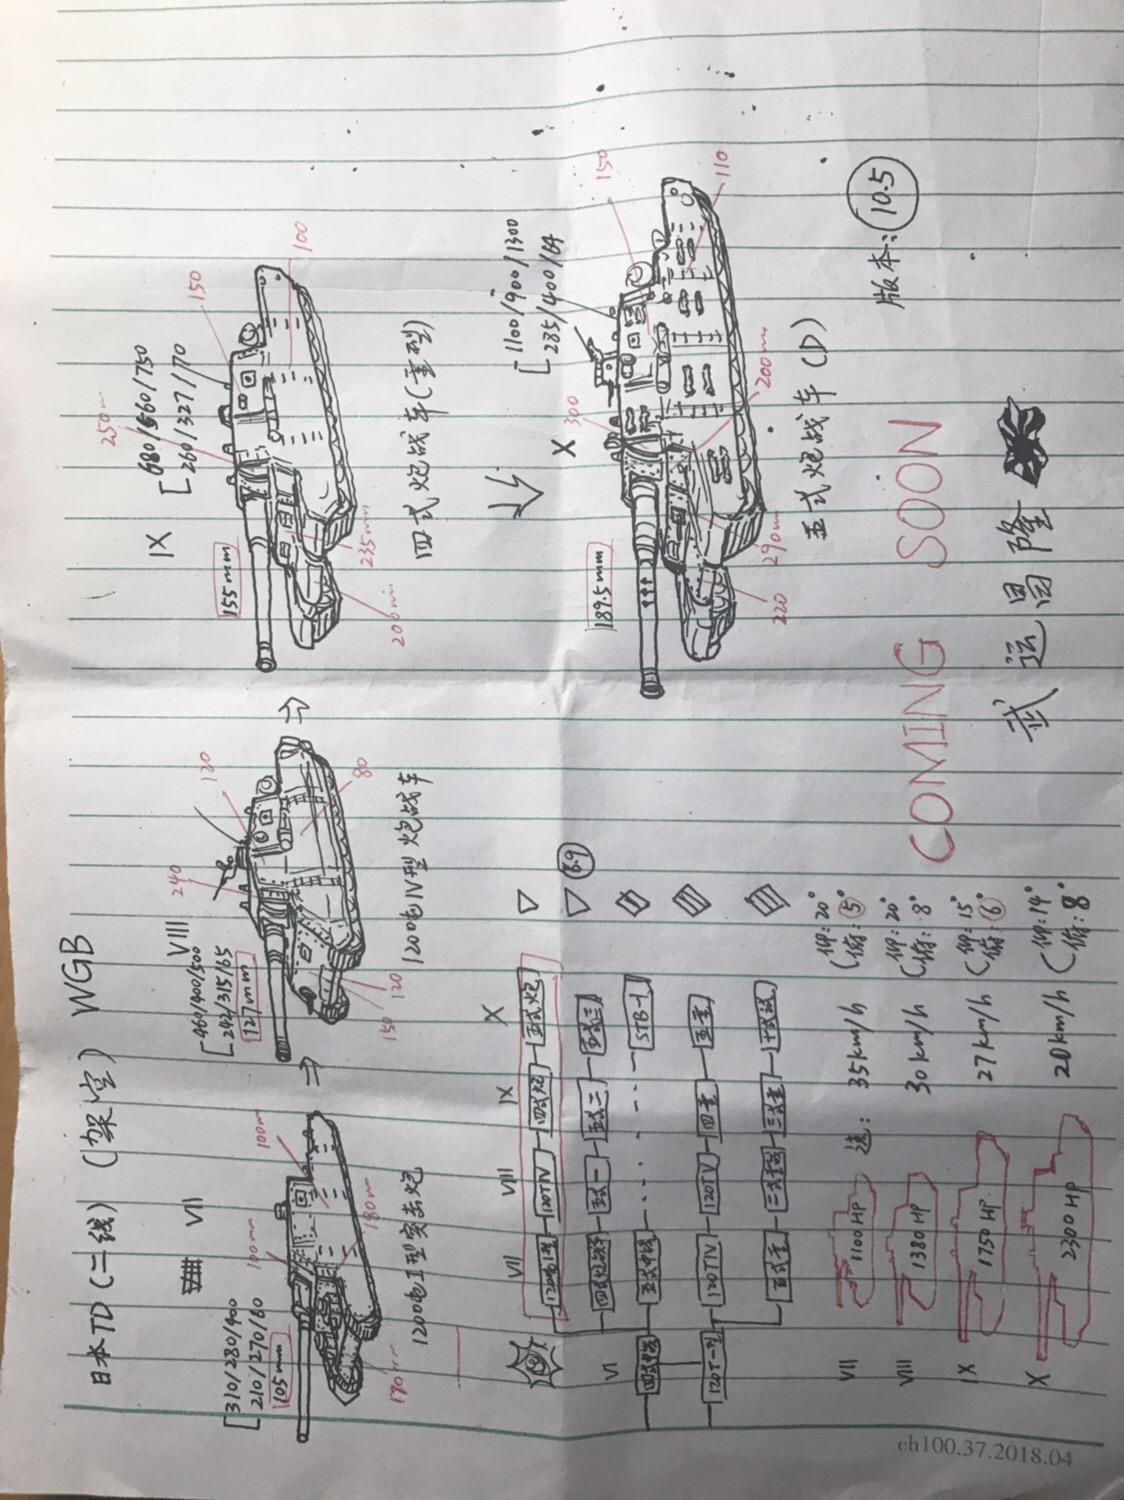 日本TD (二线) (架空) WGB
VII
[310/280/400
210/270/60
105mm
100mm
100m
180m
120吨I型突击炮
VIII
[460/400/500
242/315/65
127mm
240
120
80
150
120
120吨IV型炮战车
IX
[680/560/750
260/327/70
155mm
250m
150
100
235mm
200mm
四式炮战车(重型)
X
[1100/900/1300
285/400/64
189.5mm
300
150
110
200mm
290mm
220
五式炮战车(D)
VI VII VIII IX X
120吨I型 120TIV 四式炮 五式炮
五式一 五式二 五式三
8.9
STB-1
120TIV 120TIV 四重 五重
VII 1100HP 速: 35km/h (仰:20° 俯:5°
VIII 1380HP 30km/h (仰:20° 俯:8°
IX 1750HP 27km/h (仰:15° 俯:6°
X 2300HP 20km/h (仰:14° 俯:8°
版本: 10.5
COMING SOON
武运昌隆
ch100.37.2018.04